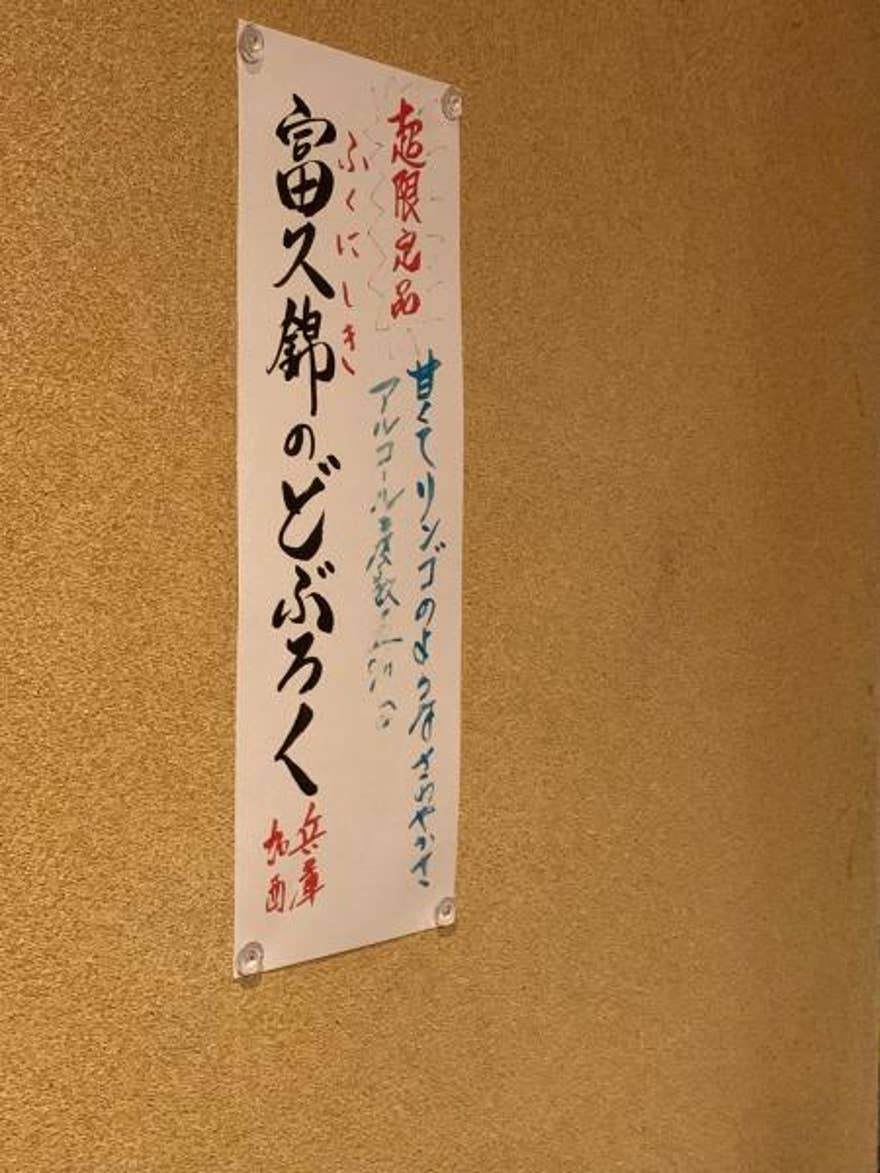 超限定品
甘くてリンゴのような さわやかさ
アルコール度数
ふくにしき
富久錦のどぶろく
兵庫
加西